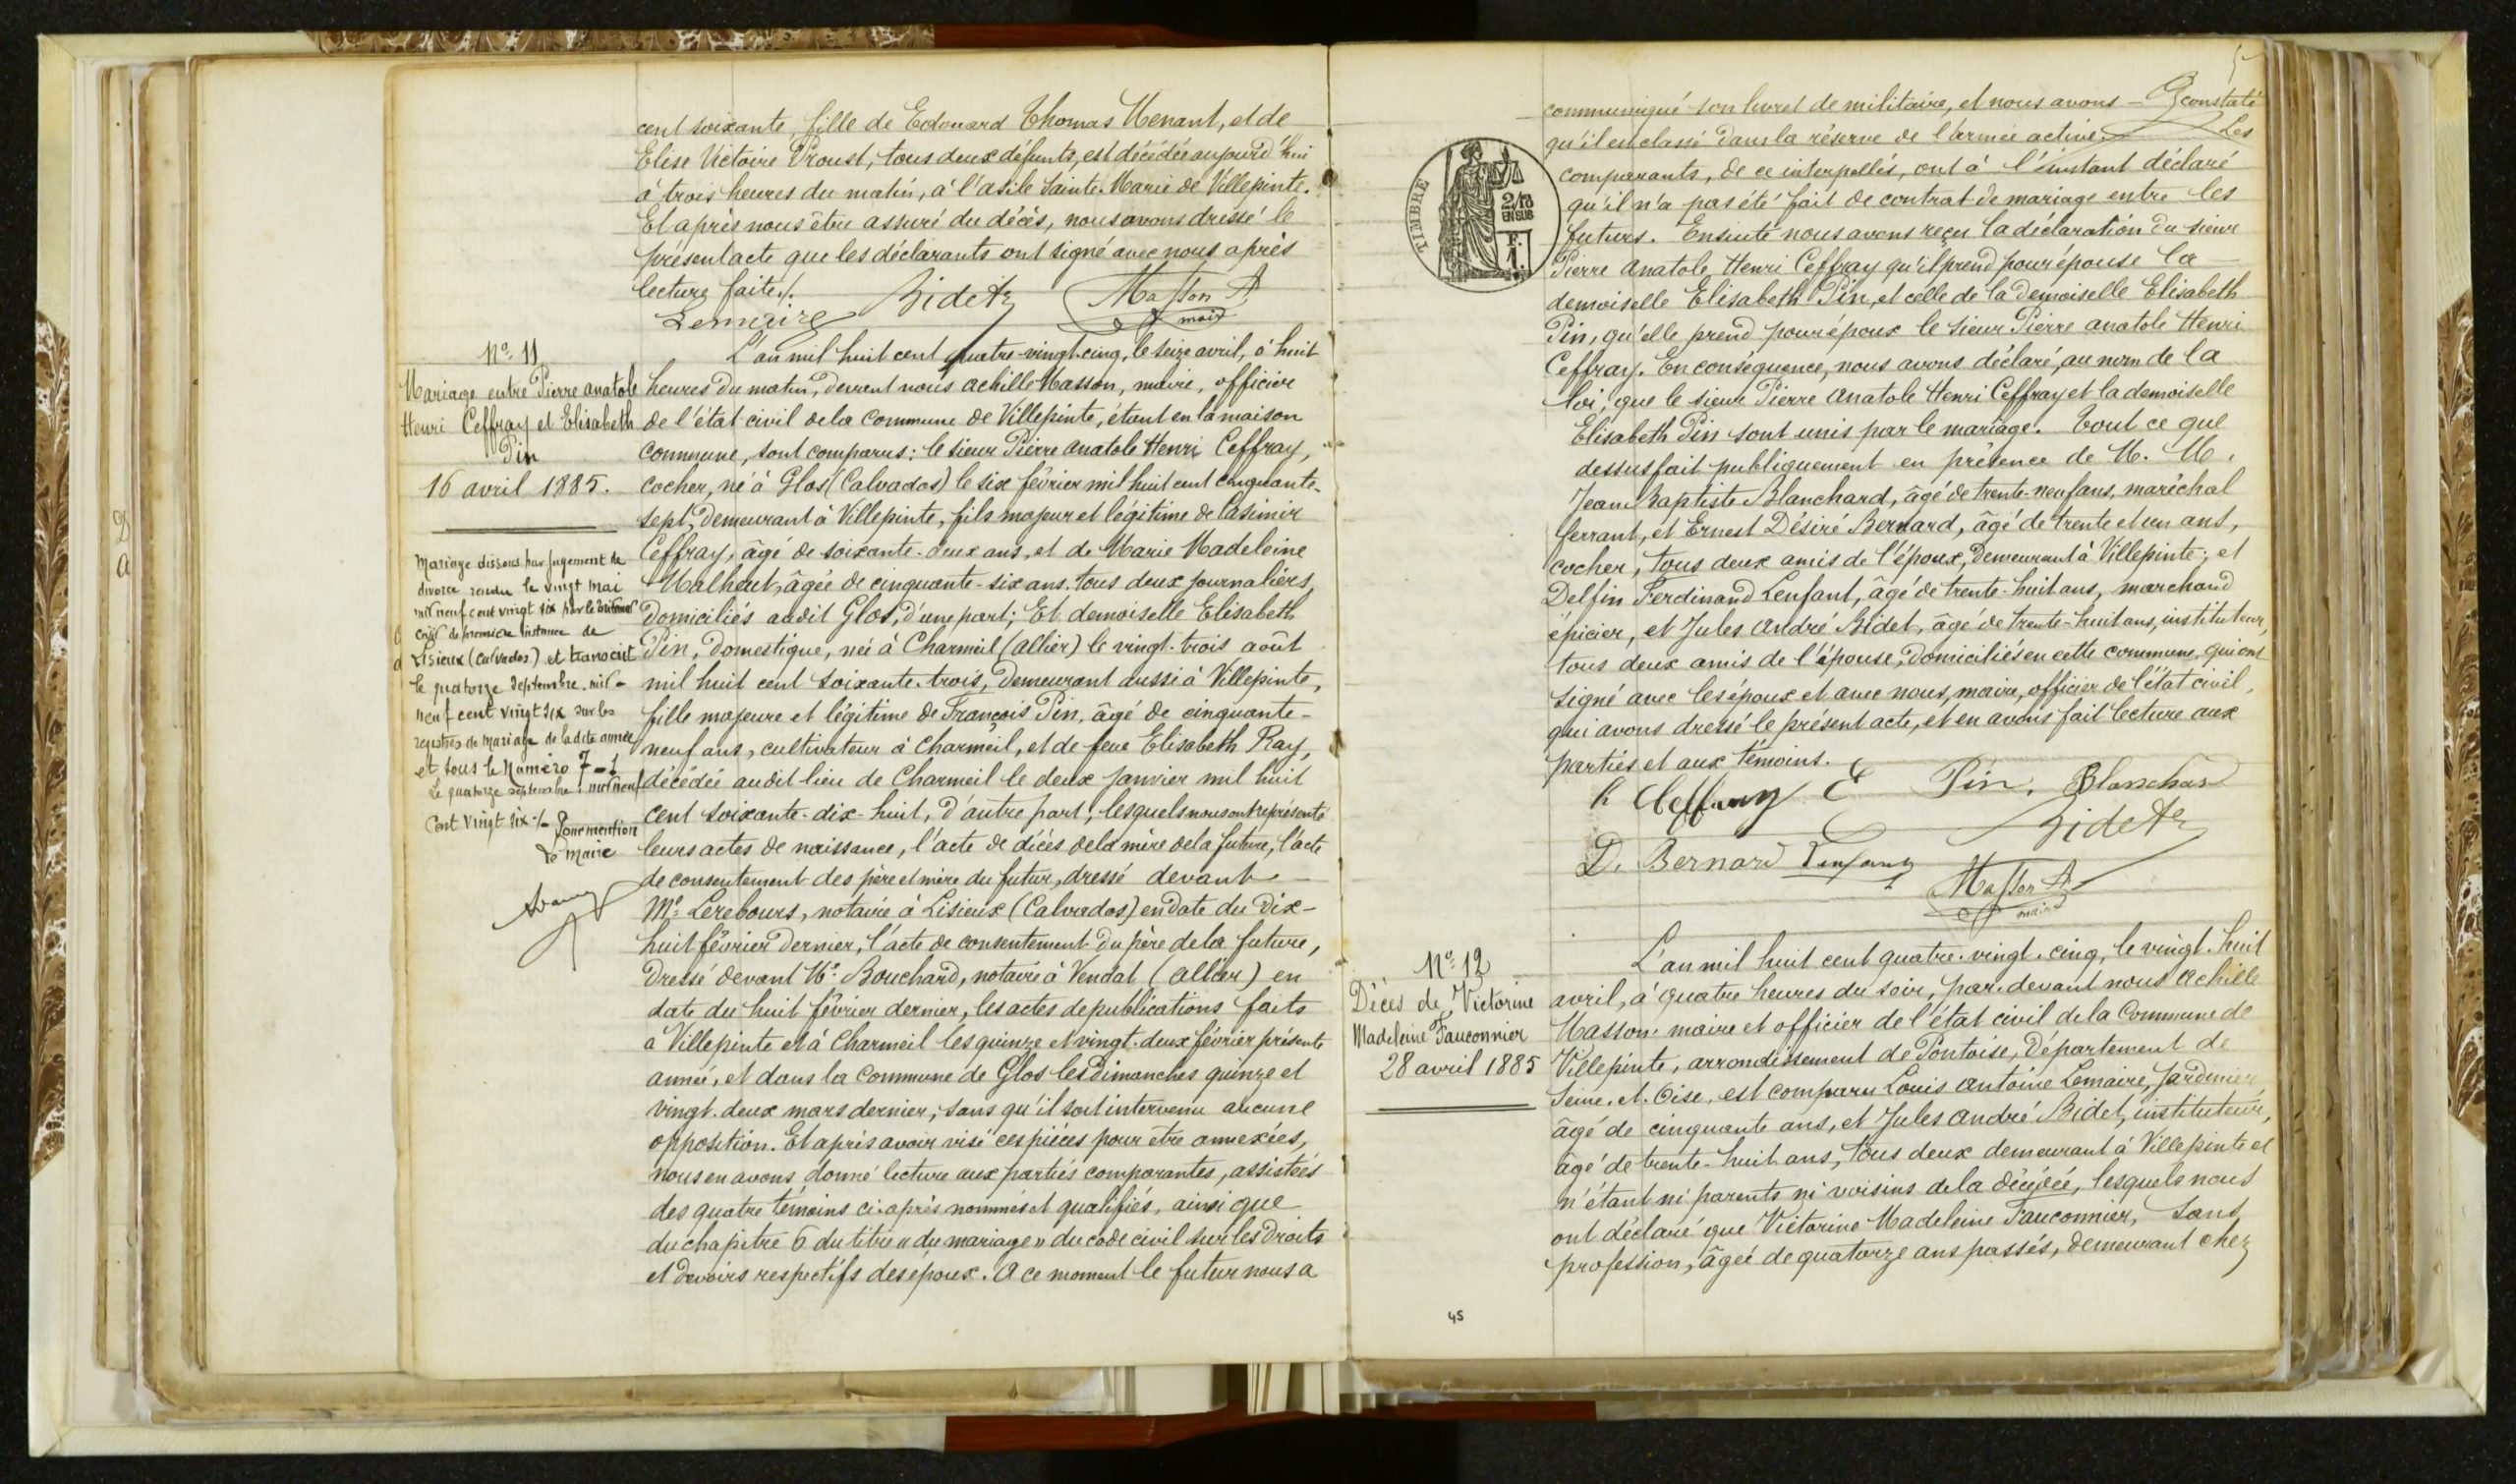 cent soixante, fille de Edouard Thomas Menant, et de
Elise Victoire Proust, tous deux défunts, est décédée aujourd'hui
à trois heures du matin, à l'asile Sainte-Marie de Villepinte.
Et après nous être assuré du décès, nous avons dressé le
présent acte que les déclarants ont signé avec nous après
lecture faite./.
Bidet
Masson A
Lemaire
maire
N° 11
Mariage entre Pierre Anatole
Henri Ceffray et Elisabeth
Pin
16 avril 1885.
Mariage dissous par jugement de
divorce rendu le vingt mai
mil neuf cent vingt six par le tribunal
civil de première instance de
Lisieux (Calvados) et transcrit
le quatorze septembre mil-
neuf cent vingt six sur les
registres de mariage de ladite année
et sous le numéro 7-1
Le quatorze septembre mil neuf
cent vingt six ./.
Pour mention
Le Maire
L'an mil huit cent quatre-vingt-cinq, le seize avril, à huit
heures du matin, devant nous Achille Masson, maire, officier
de l'état civil de la commune de Villepinte, étant en la maison
commune, sont comparus: le sieur Pierre Anatole Henri Ceffray,
cocher, né à Glos (Calvados) le six février mil huit cent cinquante-
sept, demeurant à Villepinte, fils majeur et légitime de Casimir
Ceffray, âgé de soixante-deux ans, et de Marie Madeleine
âgée de cinquante-six ans, tous deux journaliers,
domiciliés audit Glos, d'une part; Et demoiselle Elisabeth
Pin, domestique, née à Charmeil (Allier) le vingt-trois août
mil huit cent soixante-trois, demeurant aussi à Villepinte,
fille majeure et légitime de François Pin, âgé de cinquante-
neuf ans, cultivateur à Charmeil, et de feue Elisabeth Ray,
décédée audit lieu de Charmeil le deux janvier mil huit
cent soixante-dix-huit, d'autre part; lesquels nous ont représenté
leurs actes de naissance, l'acte de décès de la mère de la future, l'acte
de consentement des père et mère du futur, dressé devant
Me Lerebours, notaire à Lisieux (Calvados) en date du dix-
huit février dernier, l'acte de consentement du père de la future,
dressé devant Me Bouchard, notaire à Vendat (Allier) en
date du huit février dernier, les actes de publications faits
à Villepinte et à Charmeil les quinze et vingt-deux février présente
année, et dans la commune de Glos les dimanches quinze et
vingt-deux mars dernier, sans qu'il soit intervenu aucune
opposition. Et après avoir visé ces pièces pour être annexées,
nous en avons donné lecture aux parties comparantes, assistées
des quatre témoins ci-après nommés et qualifiés, ainsi que
du chapitre 6 du titre "du mariage" du code civil sur les droits
et devoirs respectifs des époux. A ce moment le futur nous a
5
TIMBRE
2/10
EN SUS
F.
1.
communiqué son livret de militaire, et nous avons constaté
qu'il est classé dans la réserve de l'armée active. Les
comparants, de ce interpellés, ont à l'instant déclaré
qu'il n'a pas été fait de contrat de mariage entre les
futurs. Ensuite nous avons reçu la déclaration du sieur
Pierre Anatole Henri Ceffray qu'il prend pour épouse la
demoiselle Elisabeth Pin, et celle de la demoiselle Elisabeth
Pin, qu'elle prend pour époux le sieur Pierre Anatole Henri
Ceffray. En conséquence, nous avons déclaré, au nom de la
loi, que le sieur Pierre Anatole Henri Ceffray et la demoiselle
Elisabeth Pin sont unis par le mariage. Tout ce que
dessus fait publiquement en présence de M. M.
Jean Baptiste Blanchard, âgé de trente-neuf ans, maréchal
ferrant, et Ernest Désiré Bernard, âgé de trente et un ans,
cocher, tous deux amis de l'époux, demeurant à Villepinte; et
Delfin Ferdinand Lenfant, âgé de trente-huit ans, marchand
épicier, et Jules André Bidet, âgé de trente-huit ans, instituteur,
tous deux amis de l'épouse, domiciliés en cette commune, qui ont
signé avec les époux et avec nous, maire, officier de l'état civil,
qui avons dressé le présent acte, et en avons fait lecture aux
parties et aux témoins.
h Ceffray E Pin. Blanchard
Bidet
D. Bernard Lenfant
Masson A
maire
N° 12
Décès de Victorine
Madeleine Fauconnier
28 avril 1885
L'an mil huit cent quatre-vingt-cinq, le vingt-huit
avril, à quatre heures du soir, par-devant nous Achille
Masson maire et officier de l'état civil de la Commune de
Villepinte, arrondissement de Pontoise, département de
Seine-et-Oise, est comparu Louis Antoine Lemaire, jardinier,
âgé de cinquante ans, et Jules André Bidet, instituteur,
âgé de trente-huit ans, tous deux demeurant à Villepinte et
n'étant ni parents ni voisins de la décédée, lesquels nous
ont déclaré que Victorine Madeleine Fauconnier, sans
profession, âgée de quatorze ans passés, demeurant chez
45